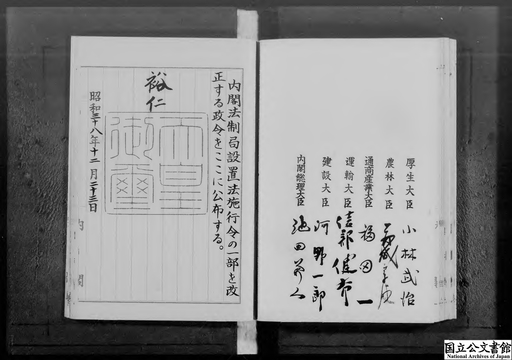 厚生大臣 小林武治
農林大臣 赤城宗徳
通商産業大臣 福田一
運輸大臣 綾部健太郎
建設大臣 河野一郎
内閣総理大臣 池田勇人
内閣法制局設置法施行令の一部を改
正する政令をここに公布する。
裕仁
天皇御璽
昭和三十八年十二月二十三日
内閣
国立公文書館
National Archives of Japan